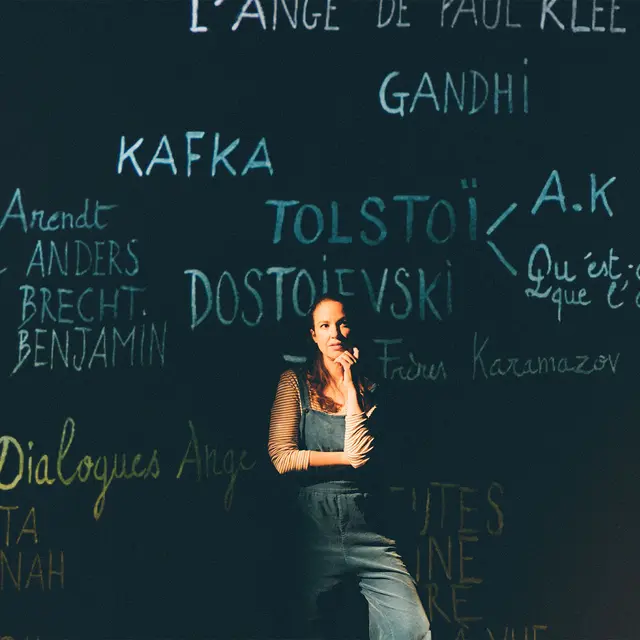 L'ANGE DE PAUL KLEE
GANDHI
KAFKA
A.K
TOLSTOÏ
Qu'est-
que l'
Arendt
ANDERS
BRECHT.
BENJAMIN
DOSTOÏEVSKI
Frères Karamazov
Dialogues Ange
TA
NAH
UTES
INE
RE
VUE